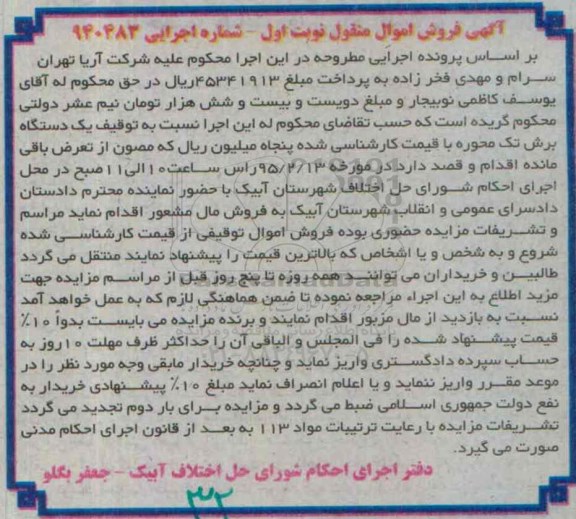 آگهی فروش اموال منقول نوبت اول - شماره اجرایی ۹۴۰۴۸۳
بر اساس پرونده اجرایی مطروحه در این اجرا محکوم علیه شرکت آریا تهران
سرام و مهدی فخر زاده به پرداخت مبلغ ۴۵۳۴۱۹۱۳ریال در حق محکوم له آقای
یوسف کاظمی نوبیجار و مبلغ دویست و بیست و شش هزار تومان نیم عشر دولتی
محکوم گریده است که حسب تقاضای محکوم له این اجرا نسبت به توقیف یک دستگاه
برش تک محوره با قیمت کارشناسی شده پنجاه میلیون ریال که مصون از تعرض باقی
مانده اقدام و قصد دارد در مورخه ۹۵/۲/۱۳راس ساعت۱۰الی۱۱صبح در محل
اجرای احکام شورای حل اختلاف شهرستان آبیک با حضور نماینده محترم دادستان
دادسرای عمومی و انقلاب شهرستان آبیک به فروش مال مشعور اقدام نماید مراسم
و تشریفات مزایده حضوری بوده فروش اموال توقیفی از قیمت کارشناسی شده
شروع و به شخص و یا اشخاص که بالاترین قیمت را پیشنهاد نمایند منتقل می گردد
طالبین و خریداران می توانند همه روزه تا پنج روز قبل از مراسم مزایده جهت
مزید اطلاع به این اجراء مراجعه نموده تا ضمن هماهنگی لازم که به عمل خواهد آمد
نسبت به بازدید از مال مزبور اقدام نمایند و برنده مزایده می بایست بدواً ۱۰٪
قیمت پیشنهاد شده را فی المجلس و الباقی آن را حداکثر ظرف مهلت ۱۰روز به
حساب سپرده دادگستری واریز نماید و چنانچه خریدار مابقی وجه مورد نظر را در
موعد مقرر واریز ننماید و یا اعلام انصراف نماید مبلغ ۱۰٪ پیشنهادی خریدار به
نفع دولت جمهوری اسلامی ضبط می گردد و مزایده برای بار دوم تجدید می گردد
تشریفات مزایده با رعایت ترتیبات مواد ۱۱۳ به بعد از قانون اجرای احکام مدنی
صورت می گیرد.
دفتر اجرای احکام شورای حل اختلاف آبیک - جعفر بگلو